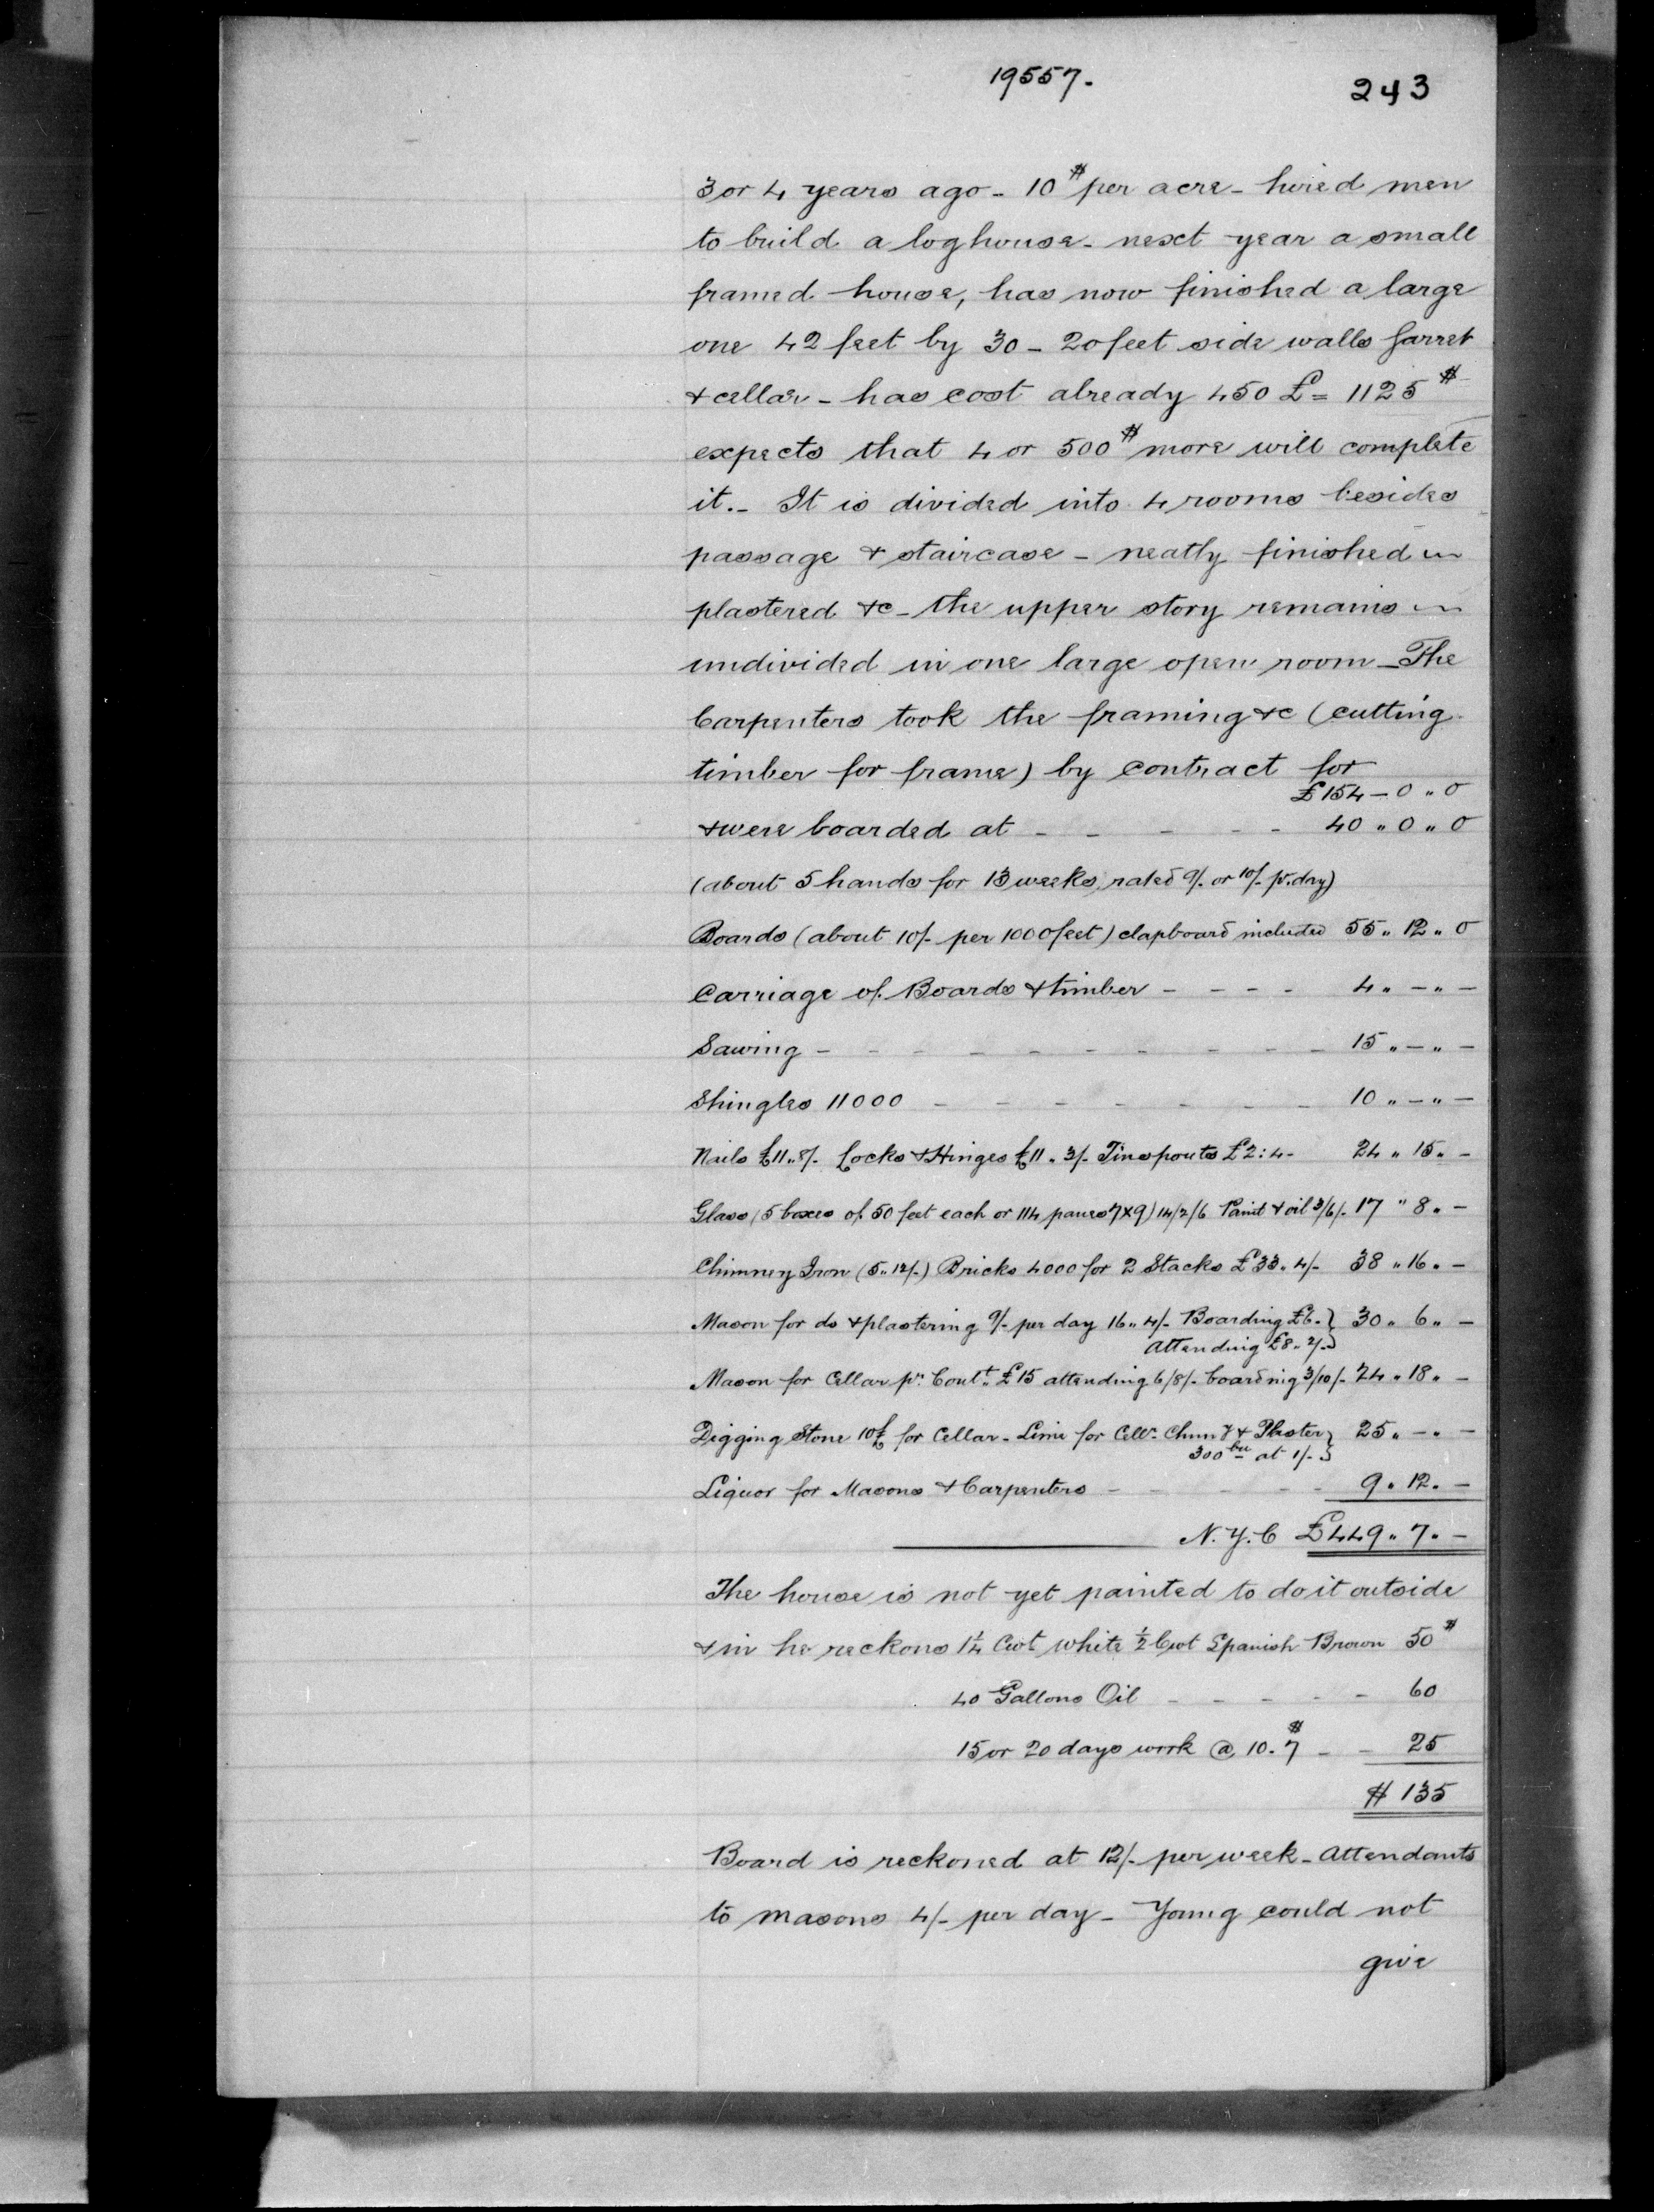 19557.
243
3 or 4 years ago - 10$ per acre - hired men
to build a loghouse - next year a small
framed house, has now finished a large
one 42 feet by 30 - 20 feet side walls garret
& cellar - has cost already 450 £ = 1125$
expects that 4 or 500$ more will complete
it. - It is divided into 4 rooms besides
passage & staircase - neatly finished
plastered &c - the upper story remains
undivided in one large open room - The
Carpenters took the framing &c (cutting
timber for frame) by contract for
£154 - 0 " 0
& were boarded at - - - - - 40 " 0 " 0
(about 5 hands for 13 weeks, rated 9/. or 10/- pr. day)
Boards (about 10/- per 1000 feet) clapboard included 55 " 12 " 0
Carriage of Boards & timber - - - - 4 " - " -
Sawing - - - - - - - - - - 15 " - " -
Shingles 11000 - - - - - - - 10 " - " -
Nails £11 " 8/- Locks & Hinges £11 " 3/- Tinspouts £2:4- 24 " 15 " -
Glass (5 boxes of 50 feet each or 114 panes 7x9) 14/2/6 Paint & oil 3/6/- 17 " 8 " -
Chimney Iron (5 " 12/-) Bricks 4000 for 2 Stacks £33 " 4/- 38 " 16 " -
Mason for do & plastering 9/- per day 16 " 4/- Boarding £6 - } 30 " 6 " -
Attending £8 " 2/- }
Mason for Cellar pr. Cont. £15 attending 6/8/- boarding 3/10/- 24 " 18 " -
Digging Stone 10£ for Cellar - Lime for Cellr. Chimy & Plaster } 25 " - " -
300 bu at 1/- }
Liquor for Masons & Carpenters - - - - - 9 " 12 " -
N. Y. C £449 " 7 " -
The house is not yet painted to do it outside
& in he reckons 1¼ Cwt white ½ Cwt Spanish Brown 50$
40 Gallons Oil - - - - - 60
15 or 20 days work @ 10. $ - - 25
$ 135
Board is reckoned at 12/- per week - Attendants
to masons 4/- per day - Young could not
give